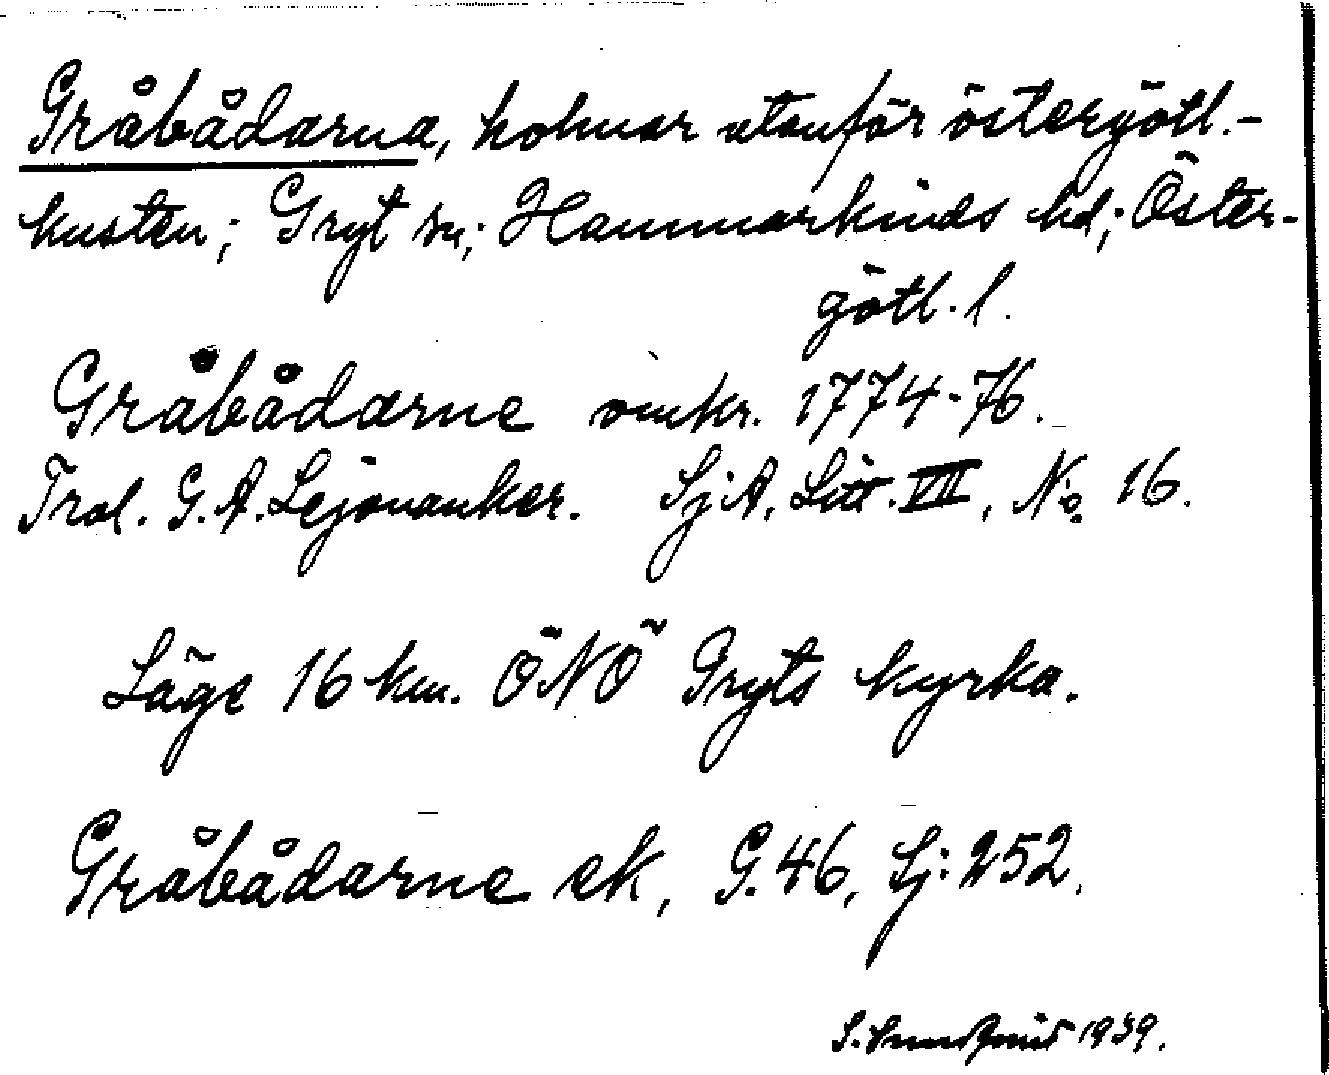 Gråbådarna, holmar utanför östergötl.-
kusten; Gryt sn; Hammarkinds hd; Öster-
götl. l.
Gråbådarne omkr. 1774-76.
Trol. G. A. Lejonanker. Sj A. Litt. VII, No. 16.
Läge 16 km. ÖNÖ Gryts kyrka.
Gråbådarne ek, G. 46, Sj: 252.
S. 1939.